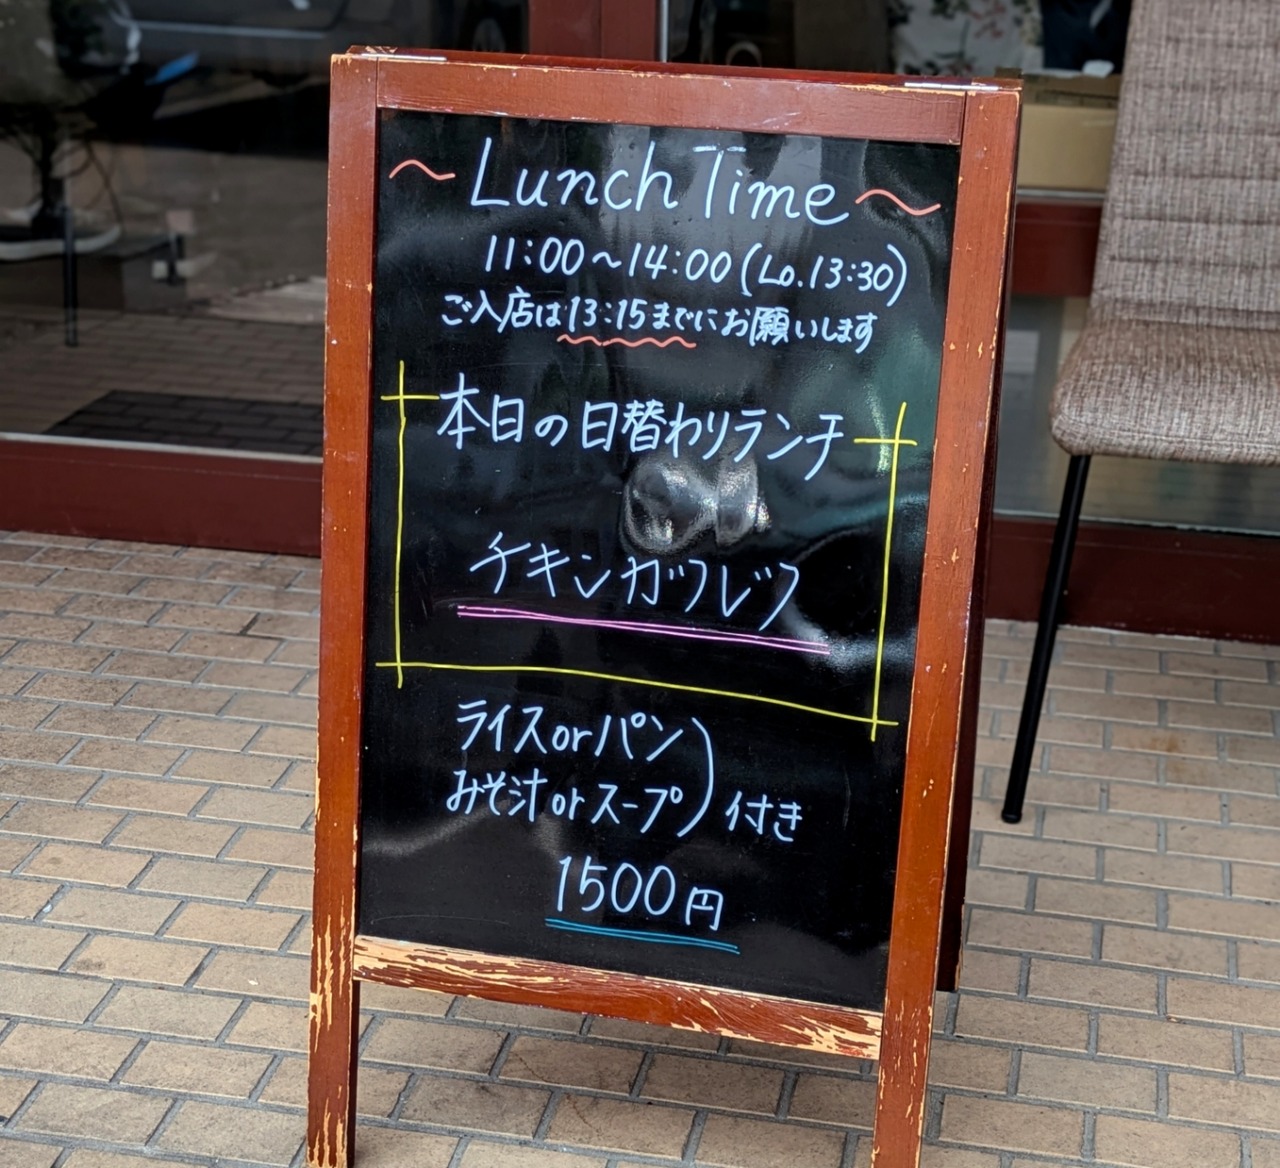 ～Lunch Time～
11:00～14:00(Lo.13:30)
ご入店は13:15までにお願いします
本日の日替わりランチ
チキンカツレツ
ライスorパン
みそ汁orスープ) 付き
1500円